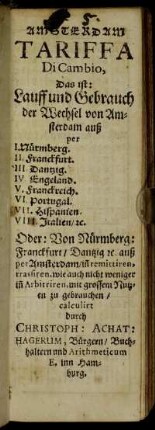 5.
AMSTERDAM
TARIFFA
Di Cambio,
Das ist:
Lauff und Gebrauch
der Wechsel von Am-
sterdam auß
per
I. Nürmberg.
II. Franckfurt.
III. Dantzig.
IV. Engeland.
V. Franckreich.
VI. Portugal.
VII. Hispanien.
VIII. Italien/ ꝛc.
Oder: Von Nürmberg:
Franckfurt/ Dantzig ꝛc. auß
per Amsterdam/ in remittiren.
trassiren. wie auch nicht weniger
in Arbitriren. mit grossem Nu-
tzen zu gebrauchen/
calculirt
durch
CHRISTOPH: ACHAT:
HAGERUM, Bürgern/ Buch-
haltern und Arithmeticum
E. inn Ham-
burg.